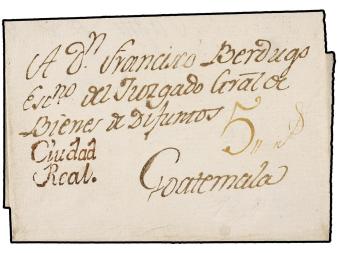 A Dn Francisco Berdugo
Esc.no del Juzgado Gral de
Bienes de Difuntos
Ciudad
Real.
5
Goatemala